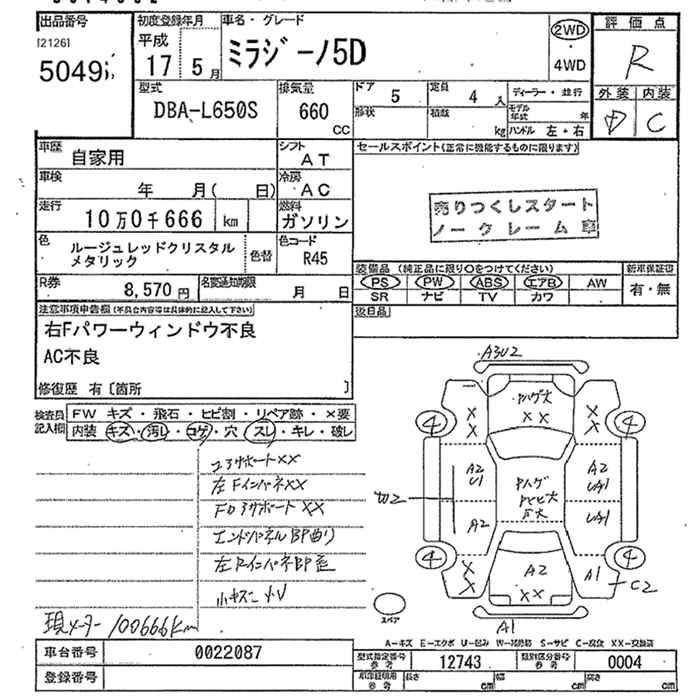 出品番号
(21261
5049
初度登録年月
平成
17 5月
車名・グレード
ミラジーノ5D
2WD
・
4WD
評価点
R
外装 内装
D C
型式
DBA-L650S
排気量
660
CC
ドア
5
定員
4 人
形状
積載
kg
ディーラー・並行
モデル年式 年
ハンドル 左・右
車歴
自家用
シフト
AT
車検
年 月( 日)
冷房
AC
走行
10万0千666 km
燃料
ガソリン
色
ルージュレッドクリスタル
メタリック
色替
色コード
R45
R券
8,570円
名変通知期限
月 日
セールスポイント(正常に機能するものに限ります)
売りつくしスタート
ノークレーム車
装備品 (純正品に限り○をつけてください)
PS PW ABS エアB AW
SR ナビ TV カワ
新車保証書
有・無
後日品
注意事項申告欄(不具合内容等は具体的に記入して下さい)
右Fパワーウィンドウ不良
AC不良
修復歴 有〔箇所 〕
検査員
記入欄
FW キズ・飛石・ヒビ割・リペア跡・×要
内装 キズ・汚レ・コゲ・穴・スレ・キレ・破レ
コアサポートXX
左FインパネXX
エンドパネルBP曲り
現メーター 100666km
A3U2
XX
4
A2
U1
A2
UA1
UA1
A2
A2
XX
A1
C2
A1
スペア
A-キズ E-エクボ U-凹み W-補修跡 S-サビ C-腐食 XX-交換済
車台番号
0022087
登録番号
型式指定番号
参考
12743
類別区分番号
参考
0004
長さ cm
幅 cm
高さ cm